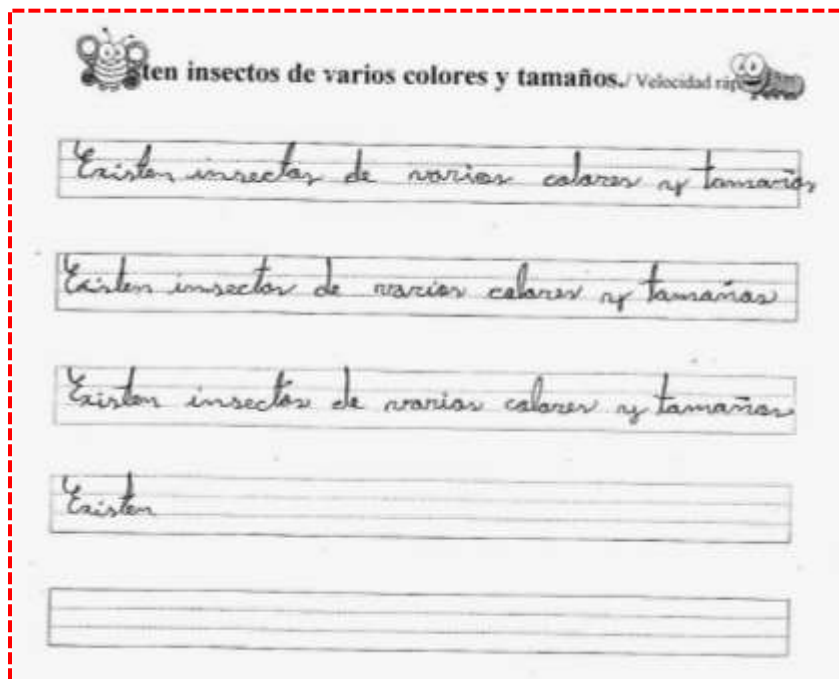 ten insectos de varios colores y tamaños./ Velocidad ráp
Existen insectos de varios colores y tamaños
Existen insectos de varios colores y tamaños
Existen insectos de varios colores y tamaños
Existen